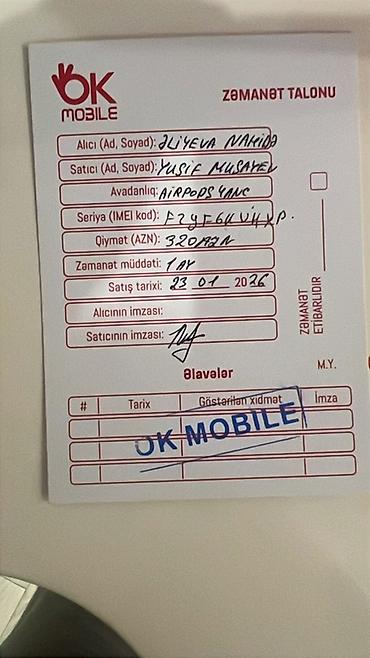 OK
MOBILE
ZƏMANƏT TALONU
Alıcı (Ad, Soyad): ƏLİYEVA NAHİDƏ
Satıcı (Ad, Soyad): YUSİF MUSAYEV
Avadanlıq: AİRPODS 4ANC
Seriya (IMEI kod):
Qiymət (AZN): 320AZN
Zəmanət müddəti: 1 AY
Satış tarixi: 23 01 2026
Alıcının imzası:
Satıcının imzası:
ZƏMANƏT
ETİBARLIDIR
M.Y.
Əlavələr
# Tarix Göstərilən xidmət İmza
OK MOBILE